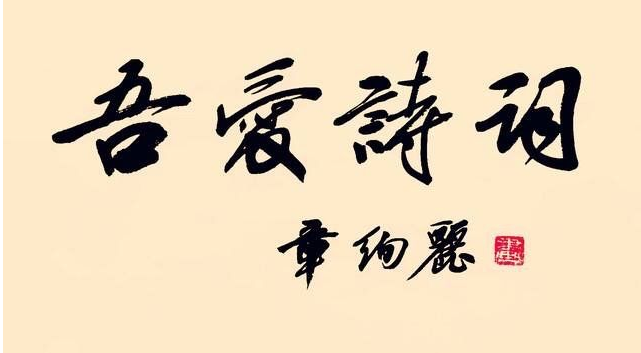 吾愛詩詞
章絢麗